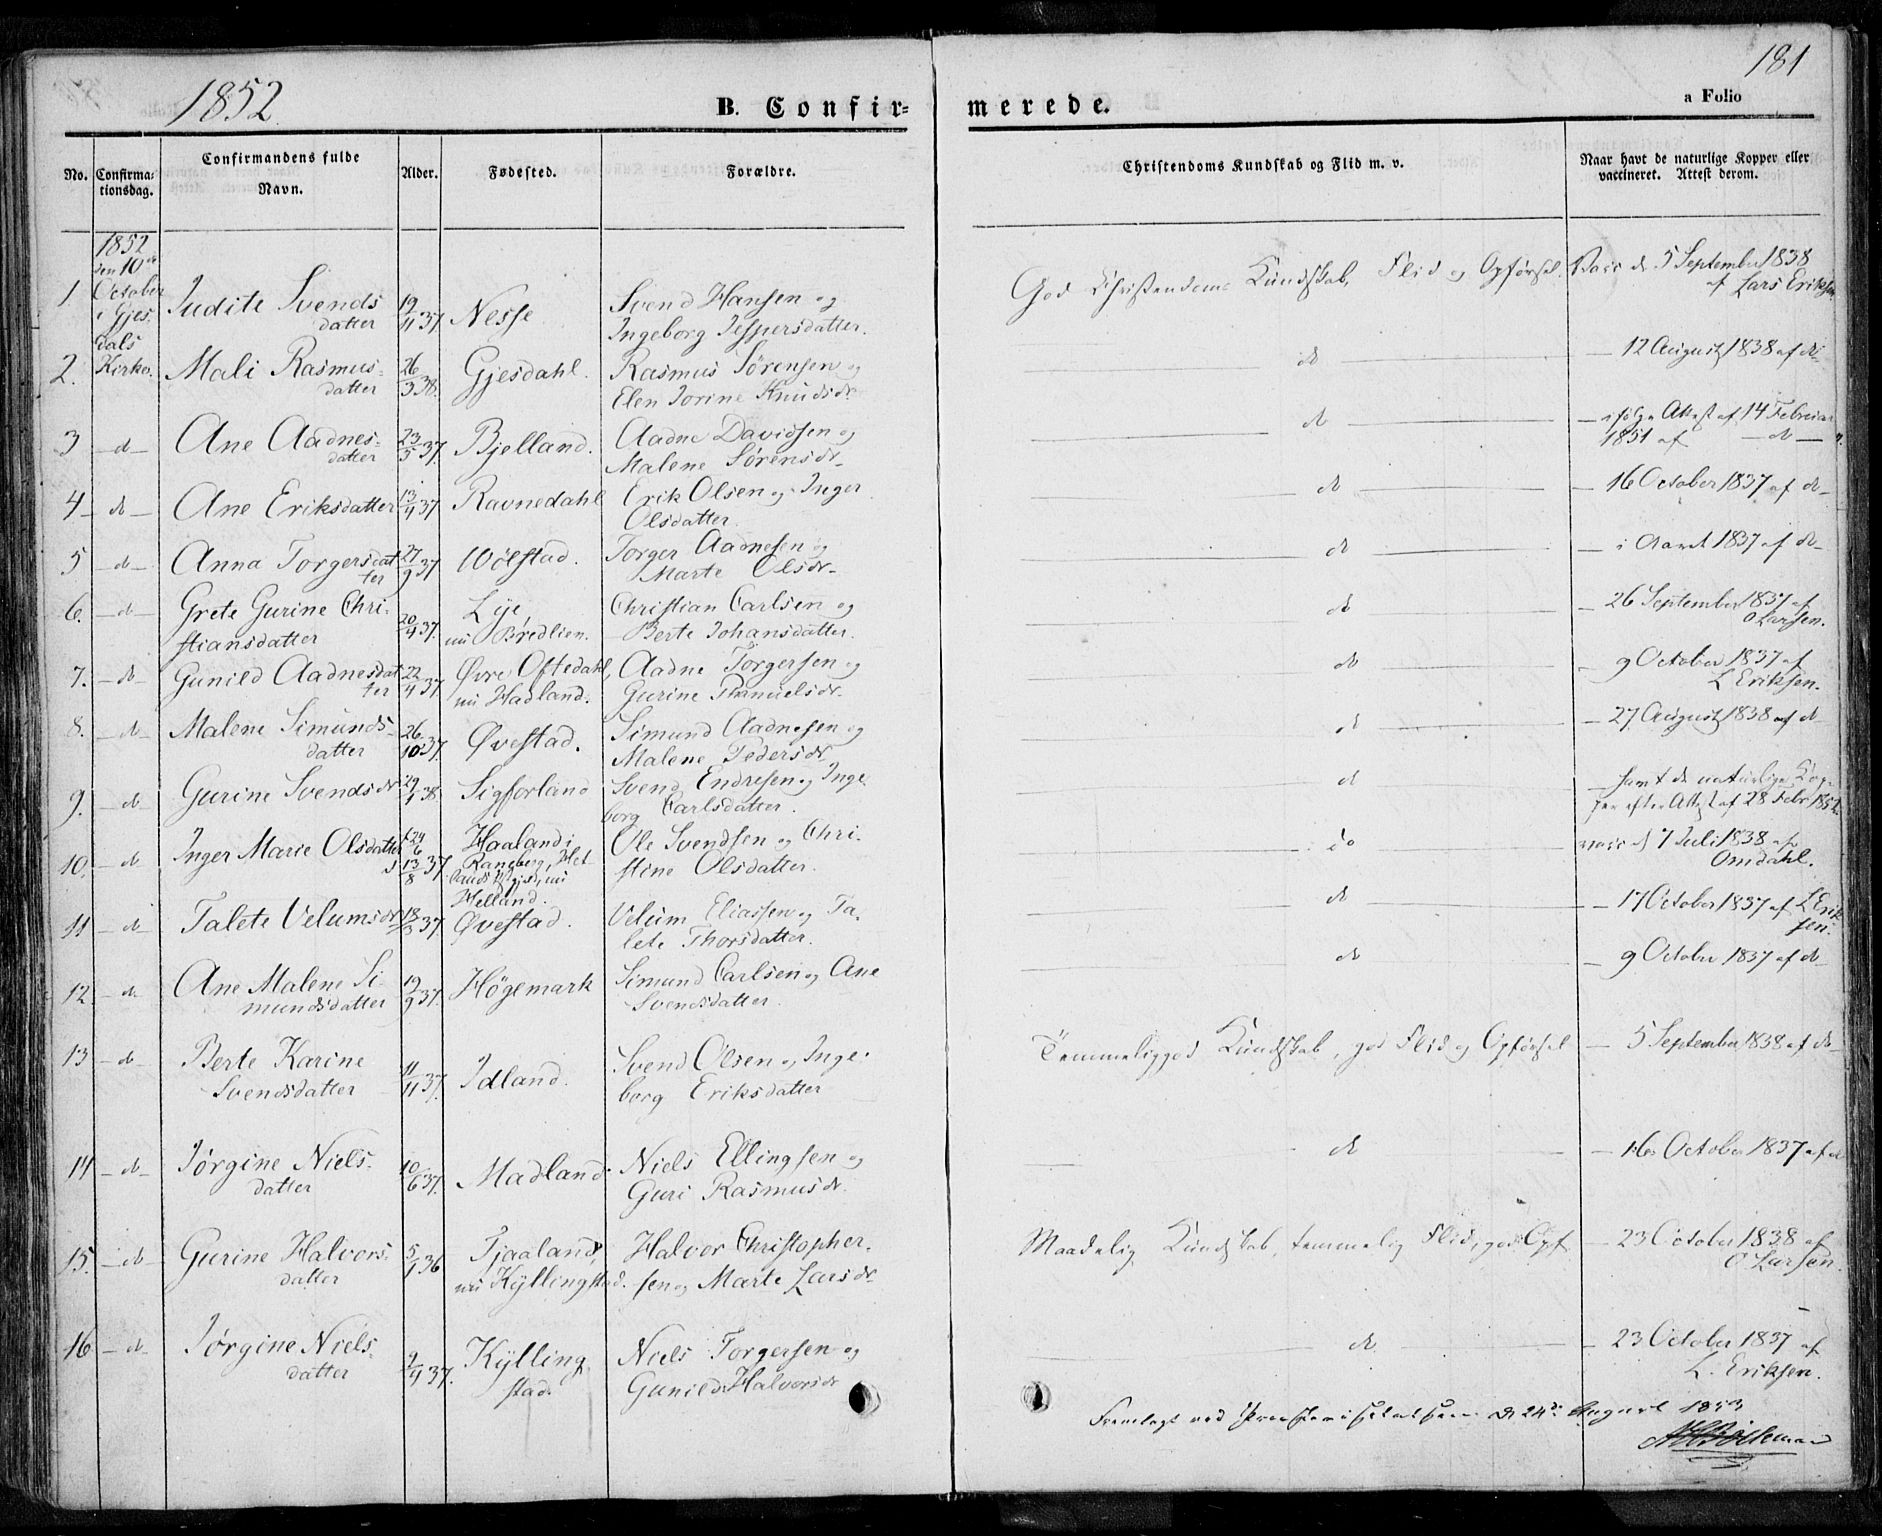 181
1852.
B. Confir= merede.
a Folio
No.
Confirma-
tionsdag.
Confirmandens fulde
Navn.
Alder.
Fødested.
Forældre.
Christendoms Kundskab og Flid m. v.
Naar havt de naturlige Kopper eller
vaccineret. Attest derom.
1852
den 10de
October
i Gjes-
dals
Kirke.
1. Judite Svends
datter 19/11 37. Nesse Svend Hansen og
Ingeborg Jespersdatter.
God Christendoms Kundskab, Flid og Opførsel. Vacc. d. 5 September 1838
af Lars Eriksen
2. Mali Rasmus-
datter 26/3 38. Gjesdahl. Rasmus Sørensen og
Elen Jorine Knudsdr.
do — 12 August 1838 af do
3 — do — Ane Aadnes-
datter 23/5 37. Bjelland. Aadne Davidsen og
Malene Sørensdr.
do — ifølge Attest af 14 Februar
1851 af — do —
4 — do — Ane Eriksdatter 13/4 37 Ravnedahl Erik Olsen og Inger
Olsdatter.
do — 16 October 1837 af do
5 — do — Anna Torgersdat-
ter 27/9 37 Wølstad. Torger Aadnesen og
Marte Olsdr.
do — i Aaret 1837 af do
6. — do — Grete Gurine Chri-
stiansdatter 20/4 37. Lye,
nu Bredlien. Christian Carlsen og
Berte Johansdatter.
do — 26 September 1837 af
O Larsen.
7. — do — Gunild Aadnesdat-
ter 22/4 37 Øvre Oftedahl,
nu Hadland. Aadne Torgersen og
Gurine Thanielsdr.
do — 9 October 1837 af
L Eriksen.
8. — do — Malene Simunds-
datter 26/10 37. Øvestad. Simund Aadnesen og
Malene Pedersdr.
do — 27 August 1838 af do
9. — do Gurine Svendsdr 29/1 38. Sigforland Svend Endresen og Inge-
borg Carlsdatter.
do — havt de naturlige Kop-
per efter Attest af 28 Febr 1852
10. — do Inger Marie Olsdatter f 24/6
d 13/8 37. Haaland i
Raneberg, Het-
lands Pgjeld, nu
Helland. Ole Svendsen og Chri-
stine Olsdatter.
do vacc. d 7 Juli 1838 af
Omdahl.
11 — do Talete Velumsdr 18/8 37. Øvestad. Velum Eliassen og Ta-
lete Thorsdatter.
do — 17 October 1837 af L Erik-
sen.
12 — do Ane Malene Si-
mundsdatter 19/9 37. Høgemark Simund Carlsen og Ane
Svendsdatter.
do — 9 October 1837 af do
13 — do Berte Karine
Svendsdatter 11/11 37. Idland. Svend Olsen og Inge-
borg Eriksdatter
Temmelig god Kundskab, god Flid og Opførsel — 5 September 1838 af do
14 — do — Jørgine Niels-
datter 10/6 37. Madland. Niels Ellingsen og
Guri Rasmusdr.
do — 16 October 1837 af do
15. — do — Gurine Halvors-
datter 5/1 36 Tjaaland,
nu Kyllingstad. Halvor Christopher-
sen og Marte Larsdr.
Maadelig Kundskab, temmelig Flid, god Opf. — 23 October 1838 af
O Larsen.
16 — do — Jørgine Niels-
datter 9/4 37. Kylling-
stad Niels Torgersen og
Gunild Halvorsdr
do — 23 October 1837 af
L. Eriksen.
Fremlagt ved d 24de August 1853